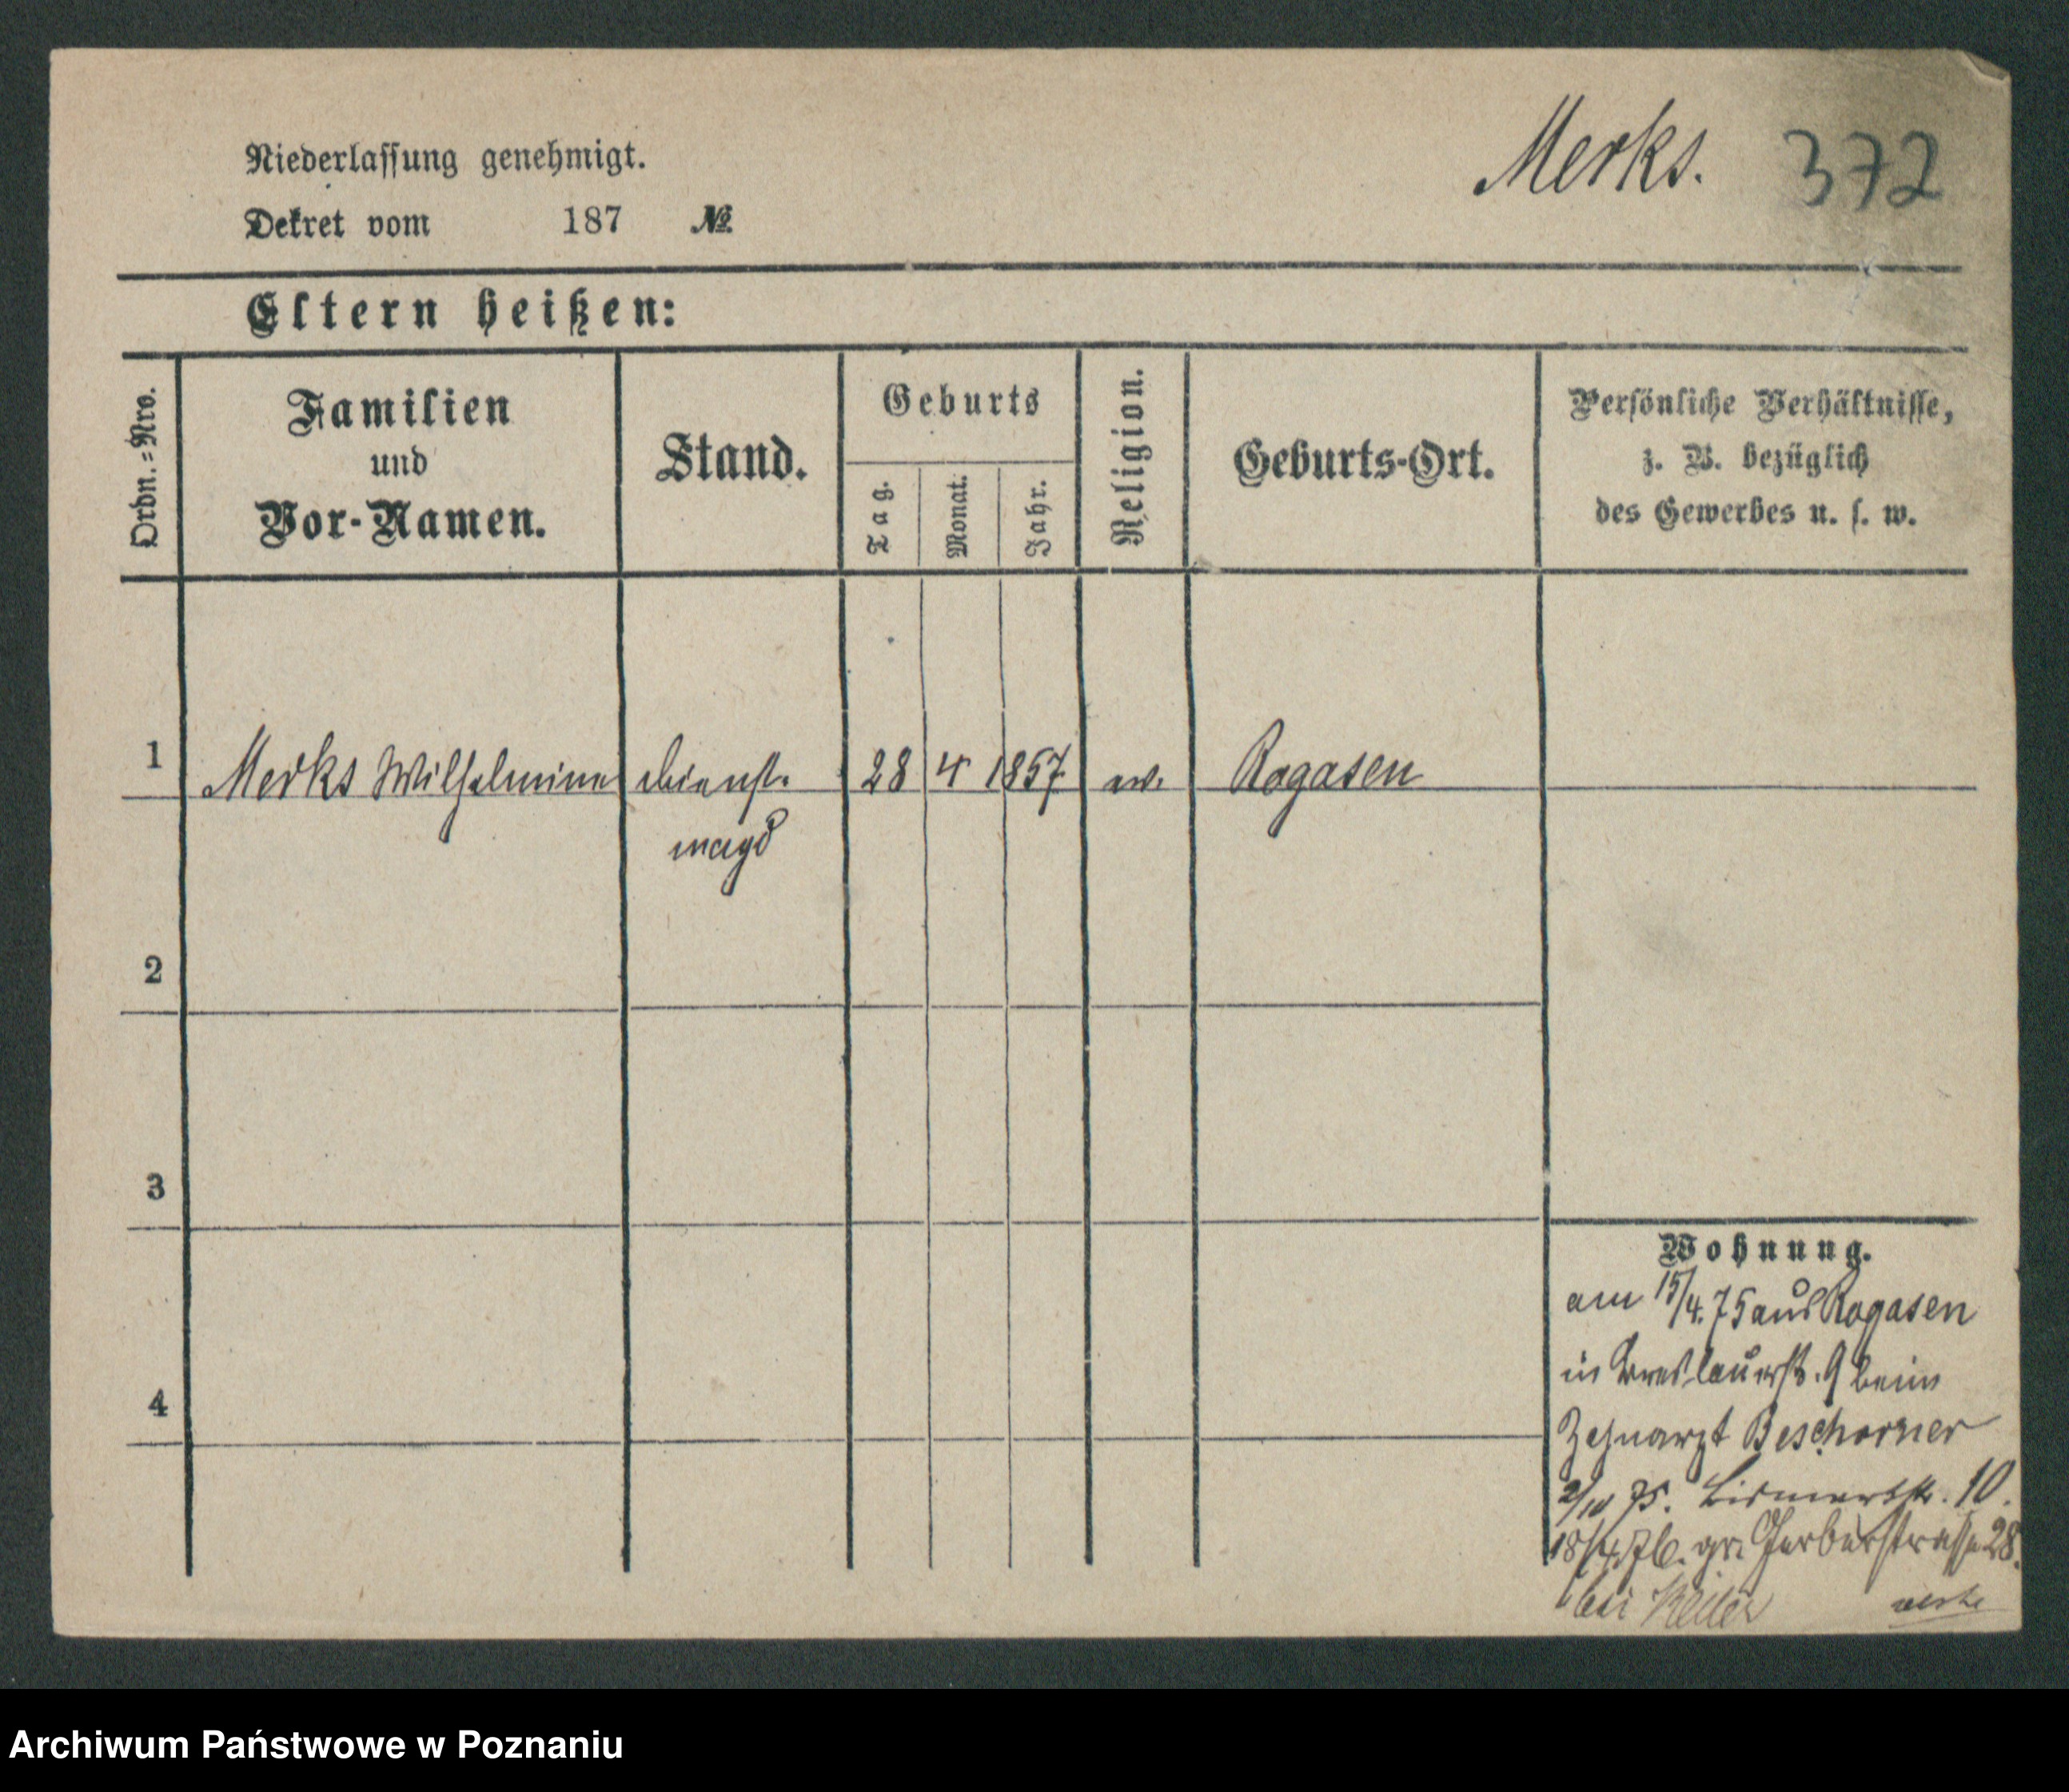 Merks. 372
Niederlassung genehmigt.
Dekret vom 187 №
Eltern heißen:
Ordn.=Nro.
Familien
und
Vor-Namen.
Stand.
Geburts
Tag.
Monat.
Jahr.
Religion.
Geburts-Ort.
Persönliche Verhältnisse,
z. B. bezüglich
des Gewerbes u. s. w.
1 Merks Wilhelmine Dienst- 28 4 1857 ev. Rogasen
magd
2
3
4
Wohnung.
am 15/4. 75 aus Rogasen
in Breslauerstr. 9 beim
Zahnarzt Beschorner
2/10 75. Bismarkstr. 10.
18/4. 76. gr. Gerberstrasse 28.
bei
Archiwum Państwowe w Poznaniu